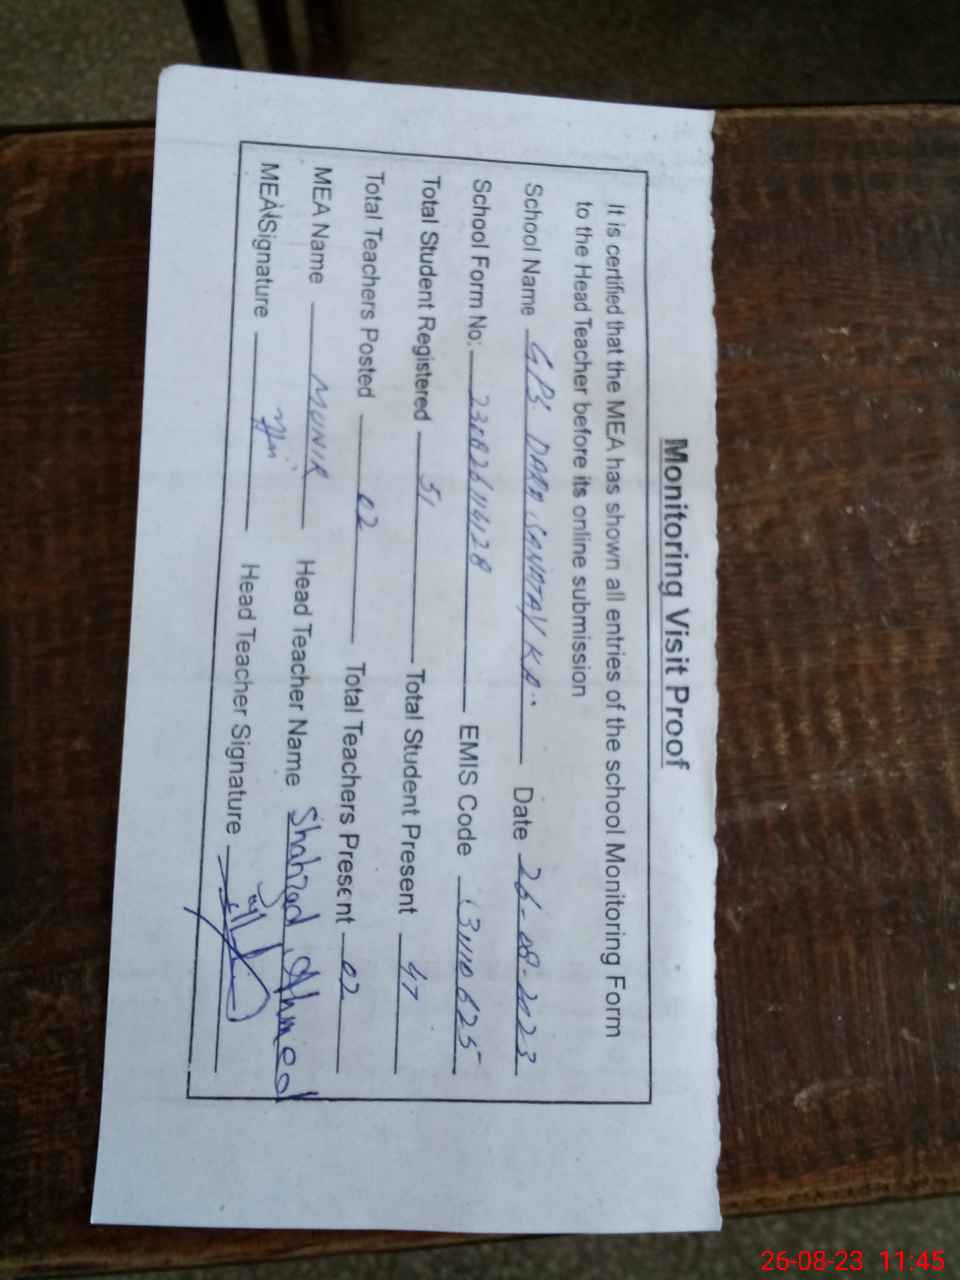 Monitoring Visit Proof
It is certified that the MEA has shown all entries of the school Monitoring Form
to the Head Teacher before its online submission
School Name GPS DARA Date 26-08-2023
School Form No: EMIS Code
Total Student Registered 51 Total Student Present 47
Total Teachers Posted 02 Total Teachers Present 02
MEA Name MUNIR Head Teacher Name Shahzad Ahmed
MEA Signature Head Teacher Signature
26-08-23 11:45